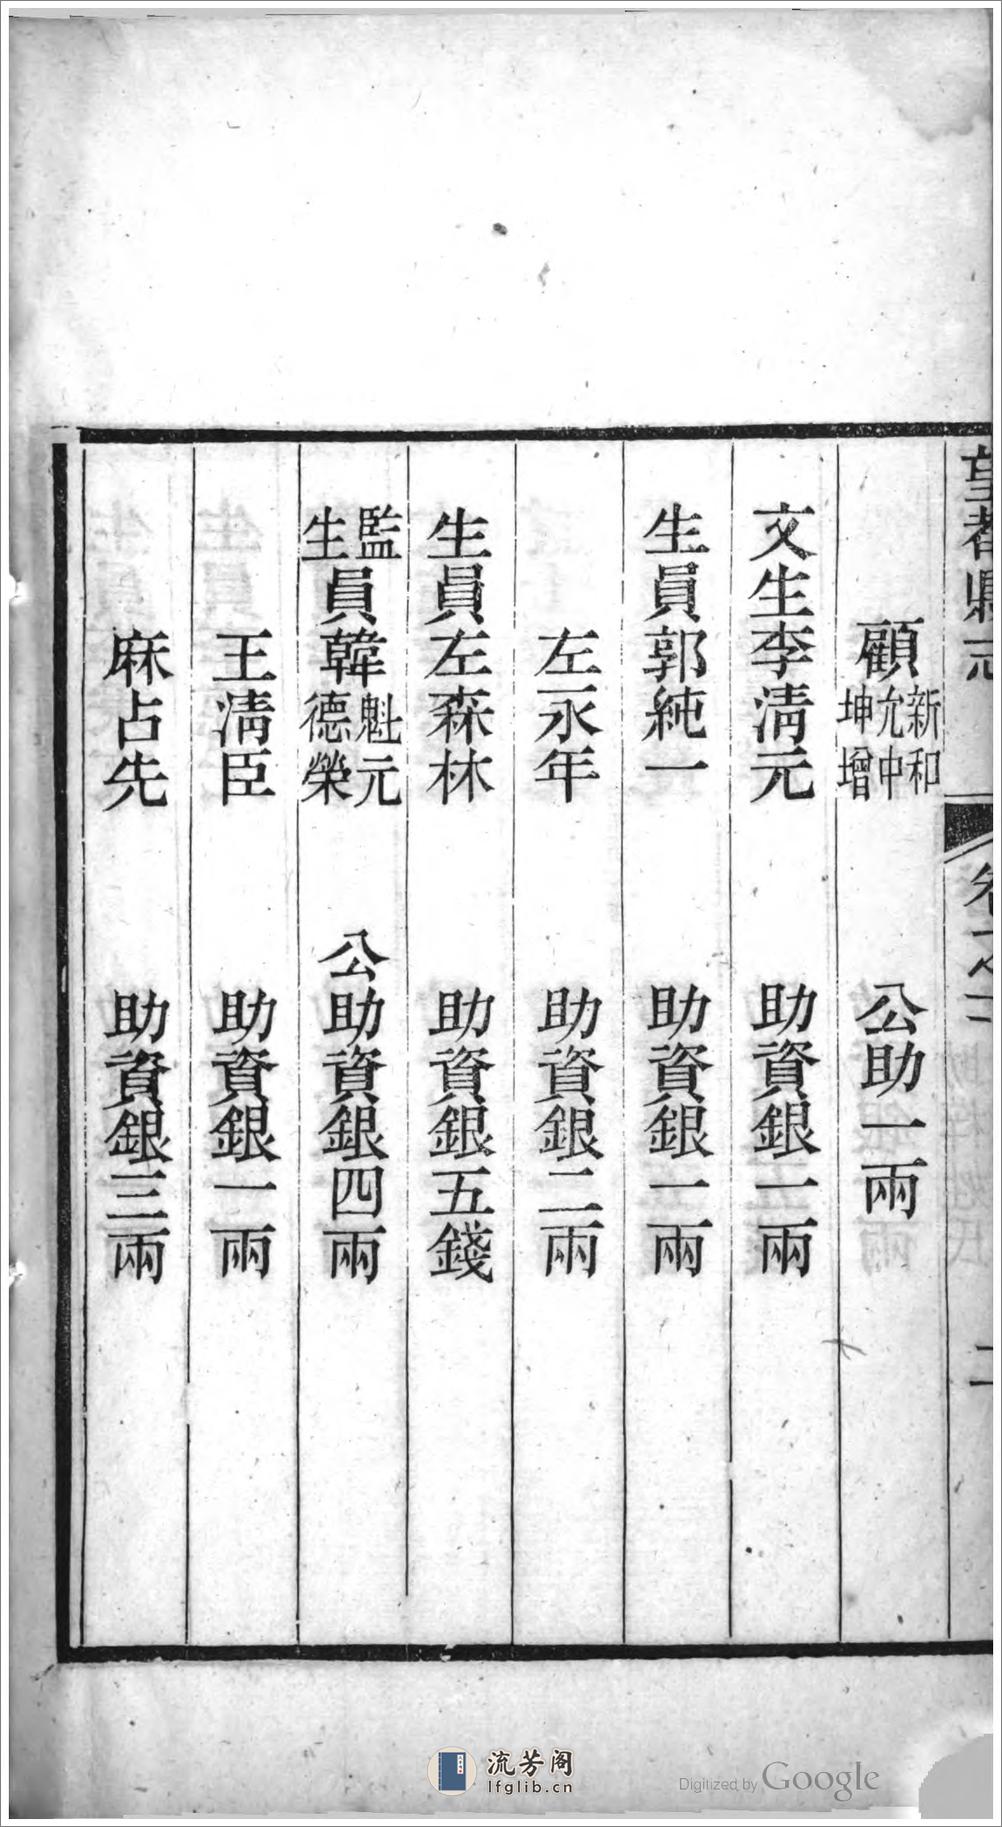 望都縣志
卷之
二
顧新和允中坤增 公助一兩
文生李清元 助資銀一兩
生員郭純一 助資銀一兩
左永年 助資銀二兩
生員左森林 助資銀五錢
監生員韓魁元德榮 公助資銀四兩
王清臣 助資銀一兩
麻占先 助資銀三兩
流芳阁
lfglib.cn
Digitized by Google